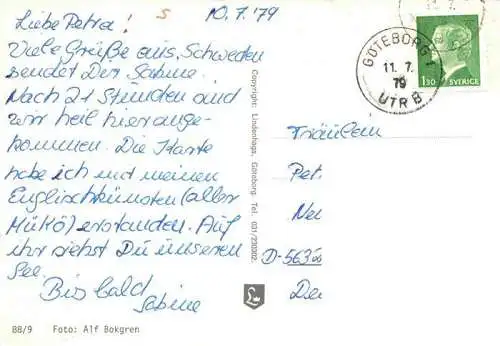 10.7.'79
Liebe Petra!
Viele Grüße aus Schweden
sendet Dir Sabine.
Nach 21 Stunden sind
wir heil hier ange-
kommen. Die Karte
habe ich mit meinen
Englischkünsten (aller
) erstanden. Auf
ihr siehst Du unseren
See.
Bis bald
Sabine
88/9 Foto: Alf Bokgren
Copyright: Lindenhags, Göteborg. Tel. 031/230302.
L
11. 7.
GÖTEBORG 1
11. 7.
79
UTR B
1.30 SVERIGE
Fräulein
Pet
Neu
D-563